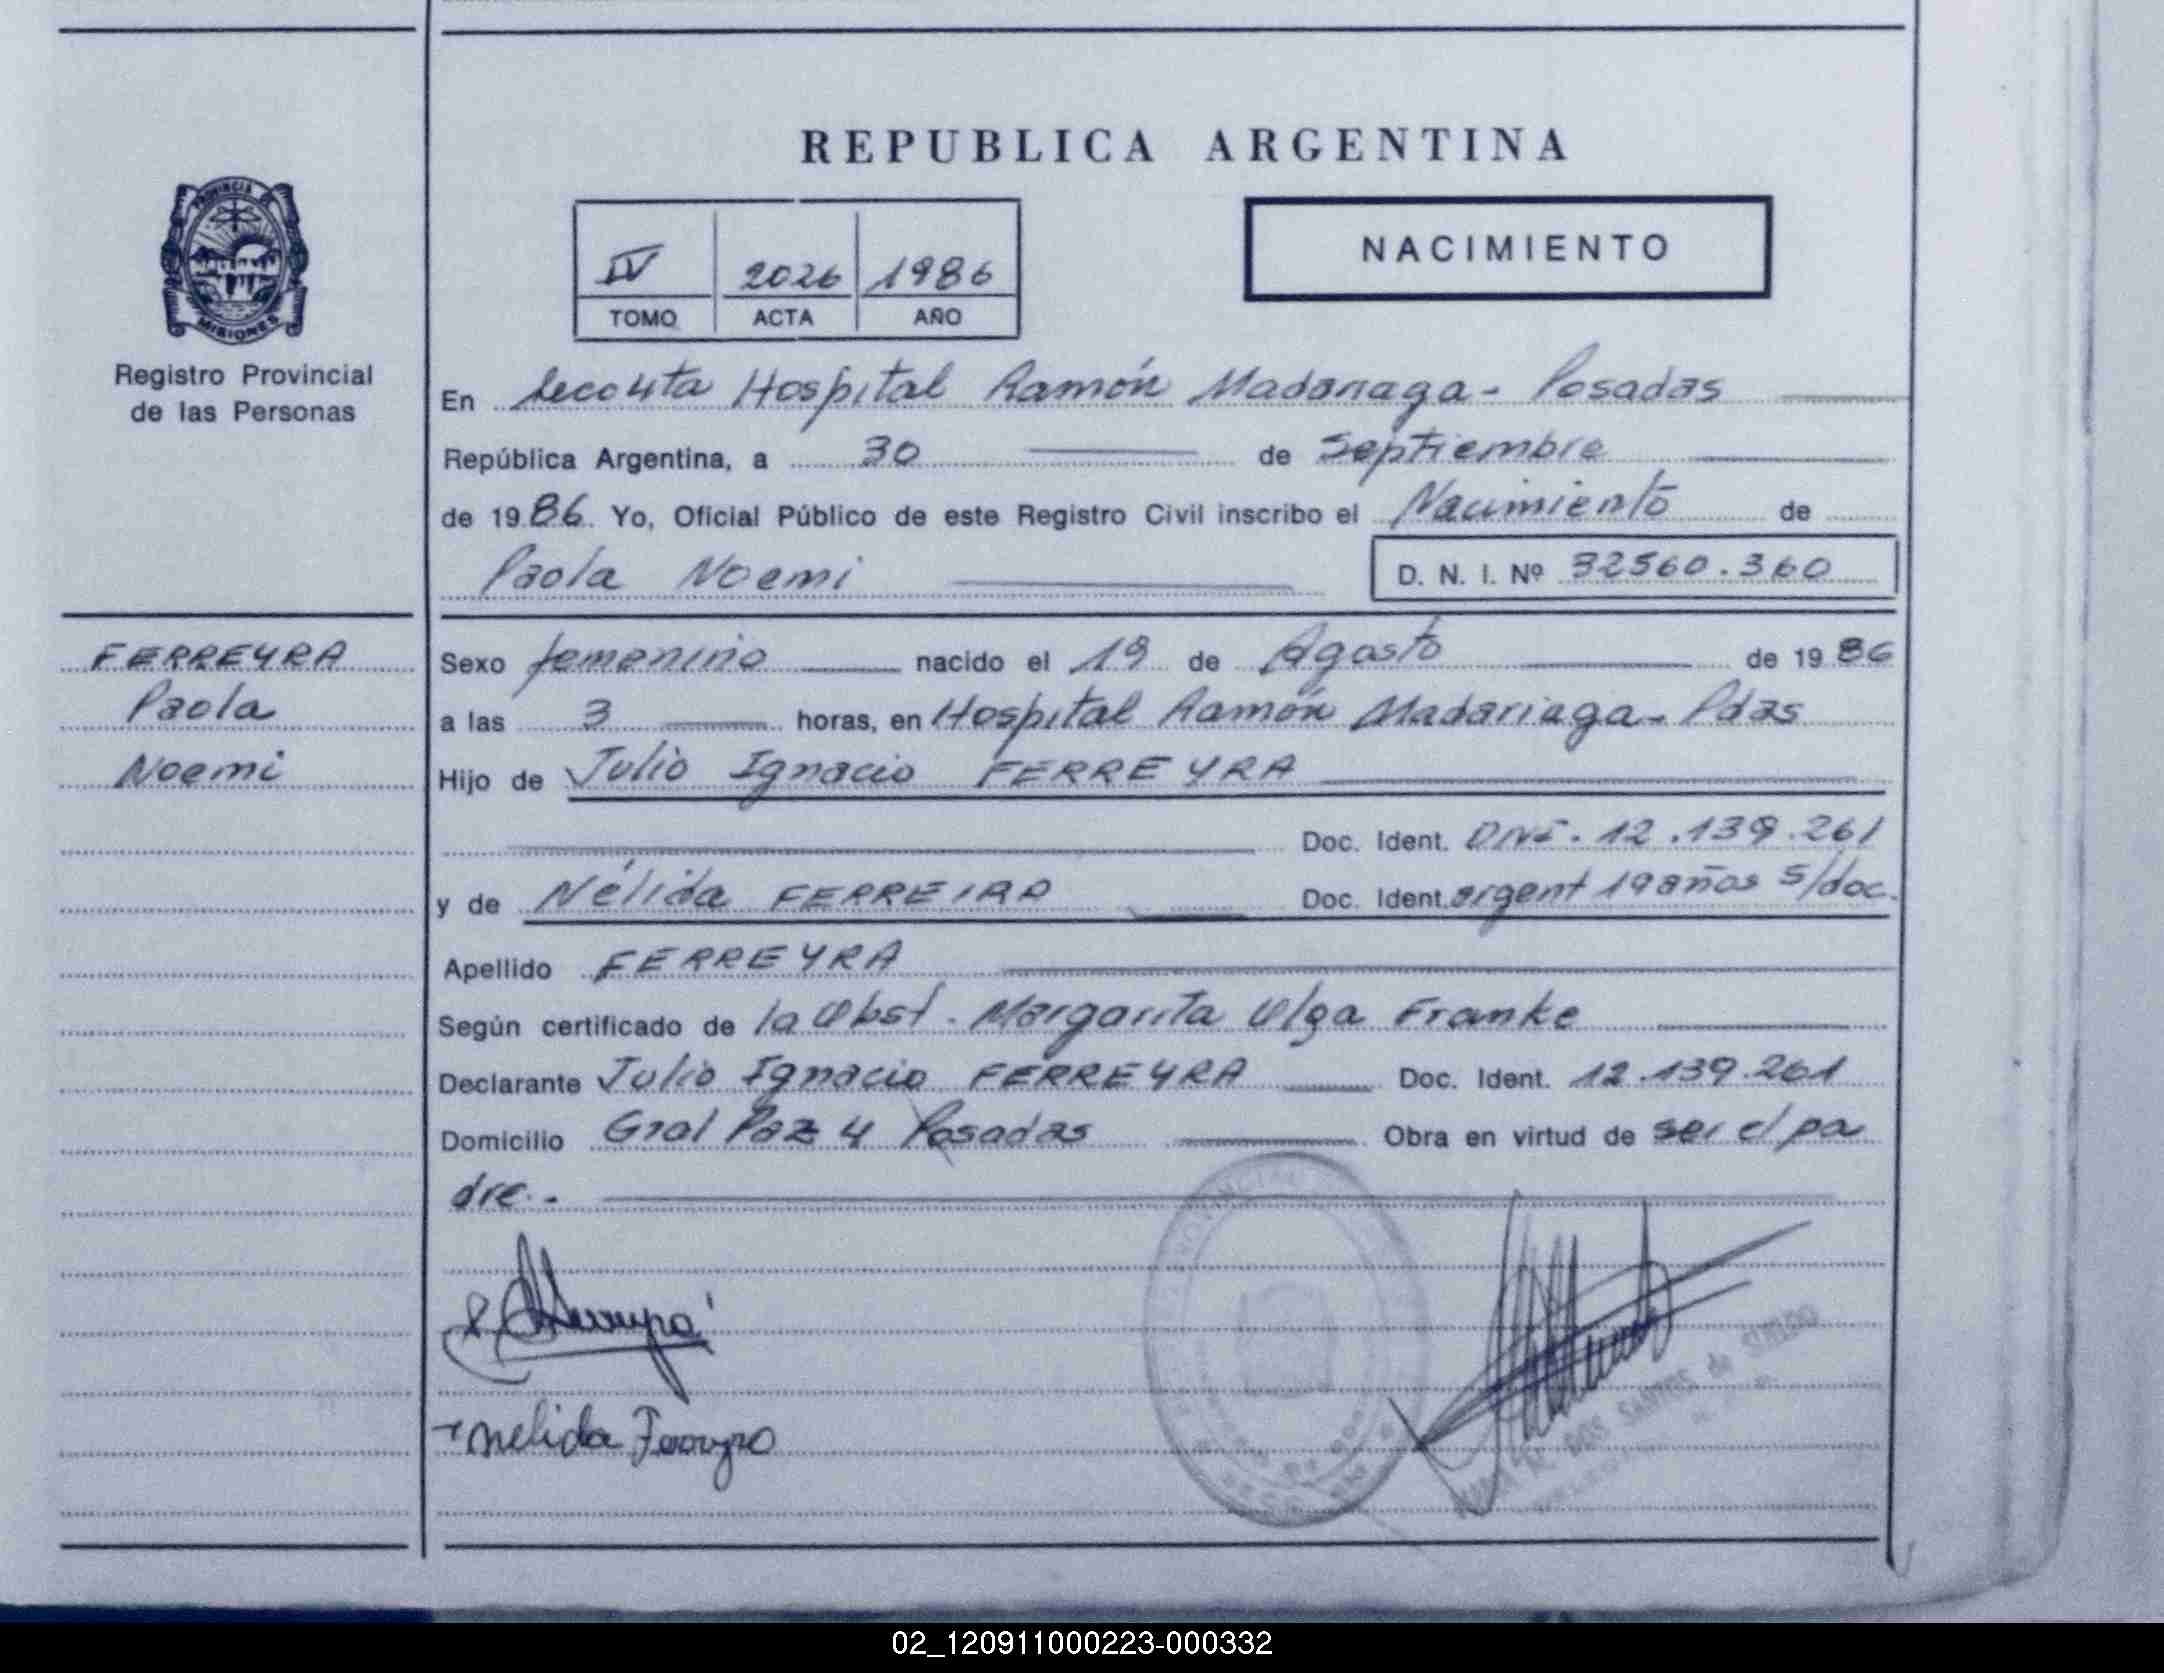 REPUBLICA ARGENTINA
PROVINCIA DE
MISIONES
Registro Provincial
de las Personas
IV 2026 1986
TOMO ACTA AÑO
NACIMIENTO
En Hospital Ramón Madariaga - Posadas
República Argentina, a 30 de Septiembre
de 1986. Yo, Oficial Público de este Registro Civil inscribo el Nacimiento de
Paola Noemi D. N. I. Nº 32560.360
FERREYRA
Paola
Noemi
Sexo femenino nacido el 19 de Agosto de 1986
a las 3 horas, en Hospital Ramón Madariaga - Pdas
Hijo de Julio Ignacio FERREYRA
Doc. Ident. DNI. 12.139.261
y de Nélida FERREIRA Doc. Ident. argent 19 años s/doc.
Apellido FERREYRA
Según certificado de la Obst. Margarita Olga Franke
Declarante Julio Ignacio FERREYRA Doc. Ident. 12.139.261
Domicilio Gral Paz 4 Posadas Obra en virtud de ser el pa
dre.-
Nelida Ferreyra
DOS SANTOS de SUELDO
02_120911000223-000332